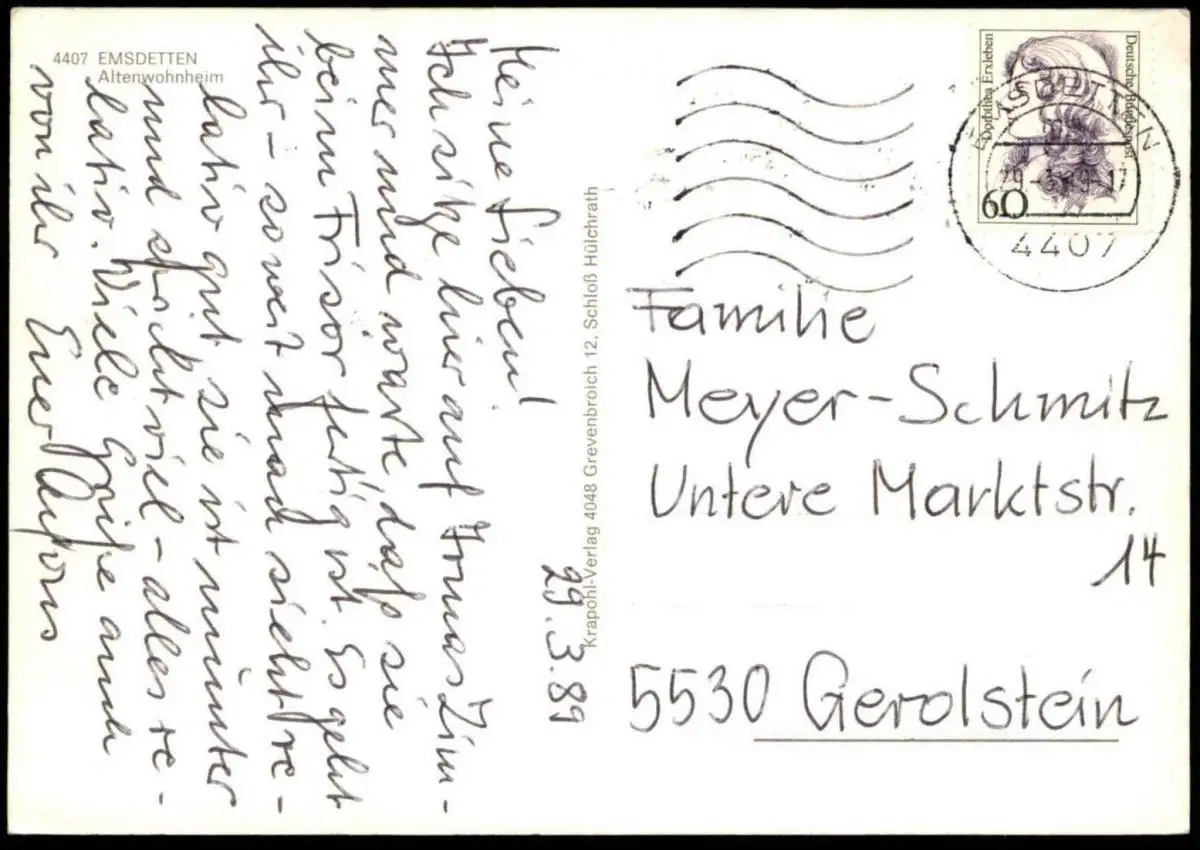 4407 EMSDETTEN
Altenwohnheim
Meine Lieben!
Ich sitze hier auf Irmas Zim-
mer und warte, daß sie
beim Frisör fertig ist. Es geht
ihr - soweit man sieht re-
lativ gut sie ist munter
und spricht viel - alles re-
lativ. Viele Grüße auch
von ihr Euer Alfons
29.3.89
Krapohl-Verlag 4048 Grevenbroich 12, Schloß Hülchrath
Dorothea Erxleben
Deutsche Bundespost
60
EMSDETTEN
4407
Familie
Meyer-Schmitz
Untere Marktstr.
14
5530 Gerolstein